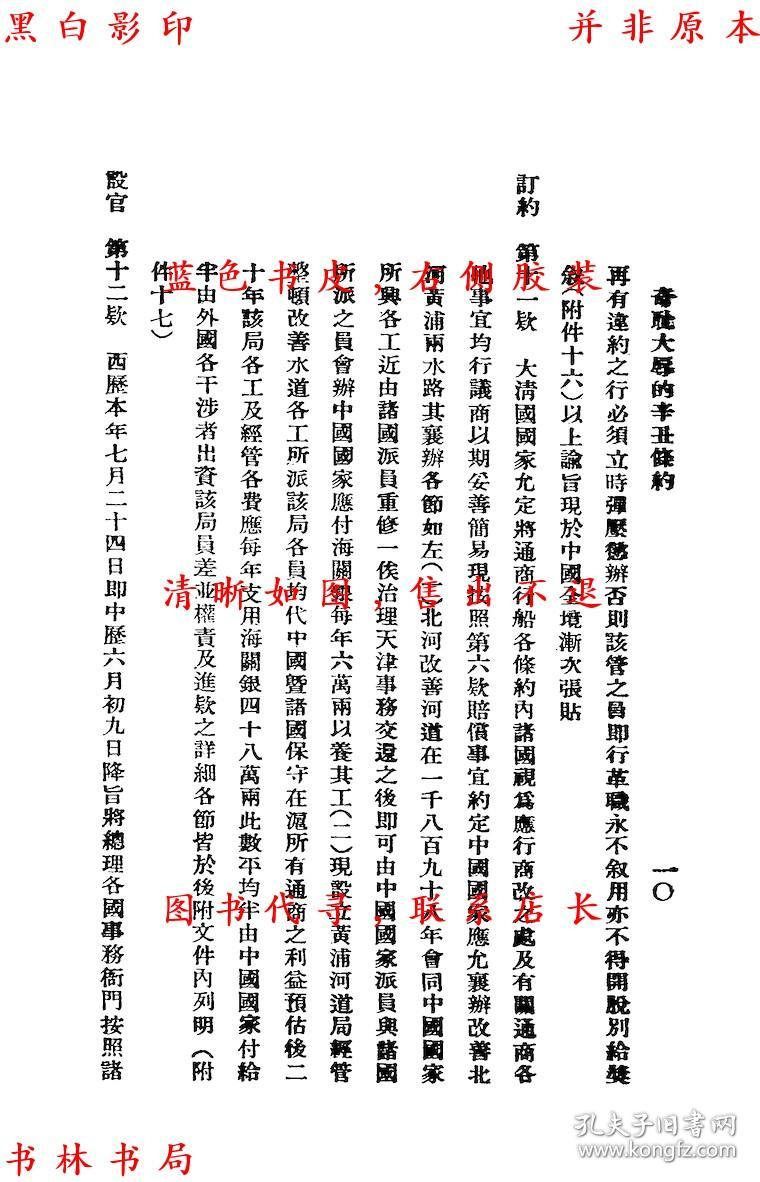 黑白影印
并非原本
奇恥大辱的辛丑條約
一〇
再有違約之行必須立時彈壓懲辦否則該管之員即行革職永不叙用亦不得開脫別給獎
敘(附件十六)以上諭旨現於中國全境漸次張貼
訂約 第十一欵 大清國國家允定將通商行船各條約內諸國視爲應行商改之處及有關通商各
他事宜均行議商以期妥善簡易現按照第六欵賠償事宜約定中國國家應允襄辦改善北
河黃浦兩水路其襄辦各節如左(一)北河改善河道在一千八百九十八年會同中國國家
所興各工近由諸國派員重修一俟治理天津事務交還之後即可由中國國家派員與諸國
所派之員會辦中國國家應付海關銀每年六萬兩以養其工(二)現設立黃浦河道局經管
整頓改善水道各工所派該局各員均代中國暨諸國保守在滬所有通商之利益預估後二
十年該局各工及經管各費應每年支用海關銀四十八萬兩此數平均半由中國國家付給
半由外國各干涉者出資該局員差並權責及進欵之詳細各節皆於後附文件內列明(附
件十七)
設官 第十二欵 西歷本年七月二十四日即中歷六月初九日降旨將總理各國事務衙門按照諸
蓝色书皮,右侧胶装
清晰如图,售出不退
图书代寻,联系店长
书林书局
孔夫子旧书网
www.kongfz.com